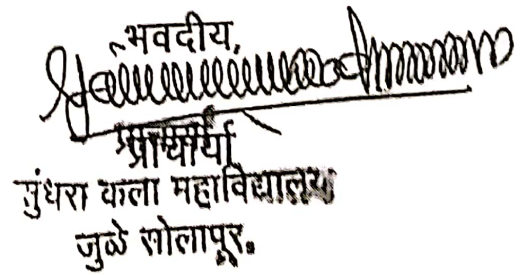 भवदीय,
प्राचार्या
सुंधरा कला महाविद्यालय
जुळे सोलापूर.